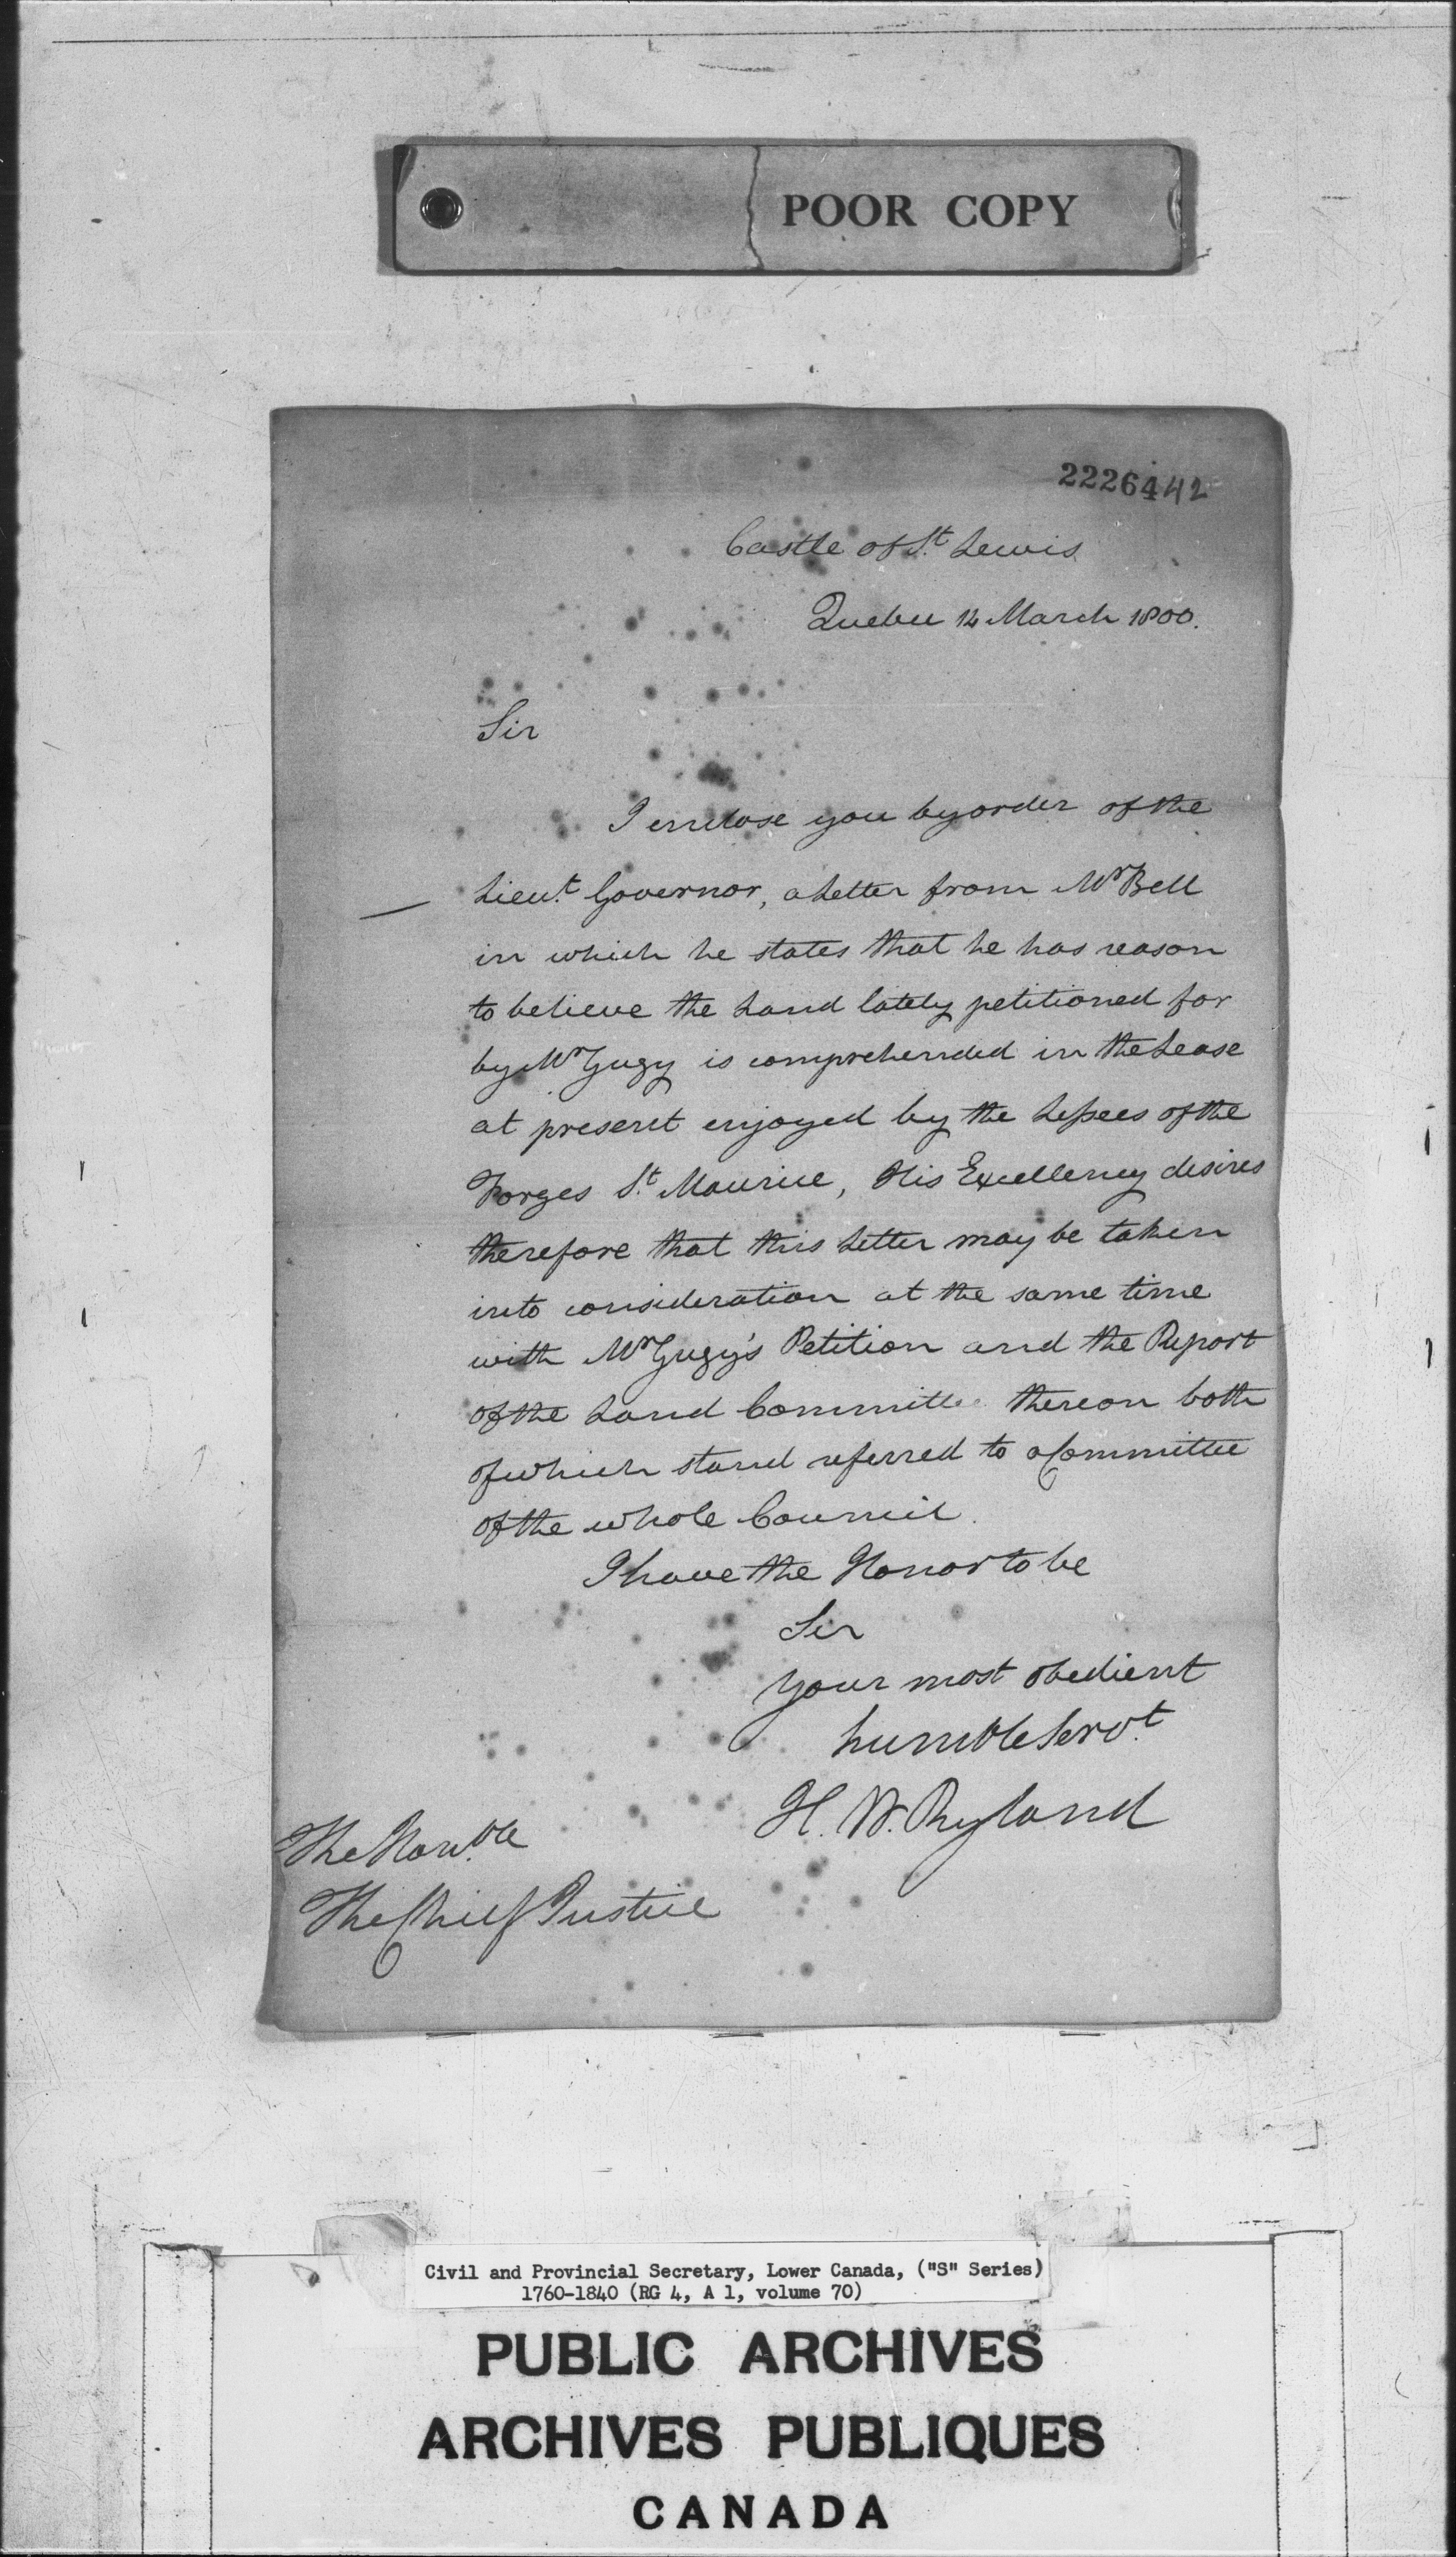 POOR COPY
2226442
Castle of St. Lewis
Quebec 14 March 1800.
Sir
I enclose you by order of the
Lieut. Governor, a Letter from Mr Bell
in which he states that he has reason
to believe the Land lately petitioned for
by Mr Gugy is comprehended in the Lease
at present enjoyed by the Leſsees of the
Forges St. Maurice, His Excellency desires
therefore that this Letter may be taken
into consideration at the same time
with Mr Gugy's Petition and the Report
of the Land Committee thereon both
of which stand referred to a Committee
of the whole Council.
I have the Honor to be
Sir
Your most obedient
humble Servt.
H. W. Ryland
The Honble
The Chief Justice
Civil and Provincial Secretary, Lower Canada, ("S" Series)
1760-1840 (RG 4, A 1, volume 70)
PUBLIC ARCHIVES
ARCHIVES PUBLIQUES
CANADA